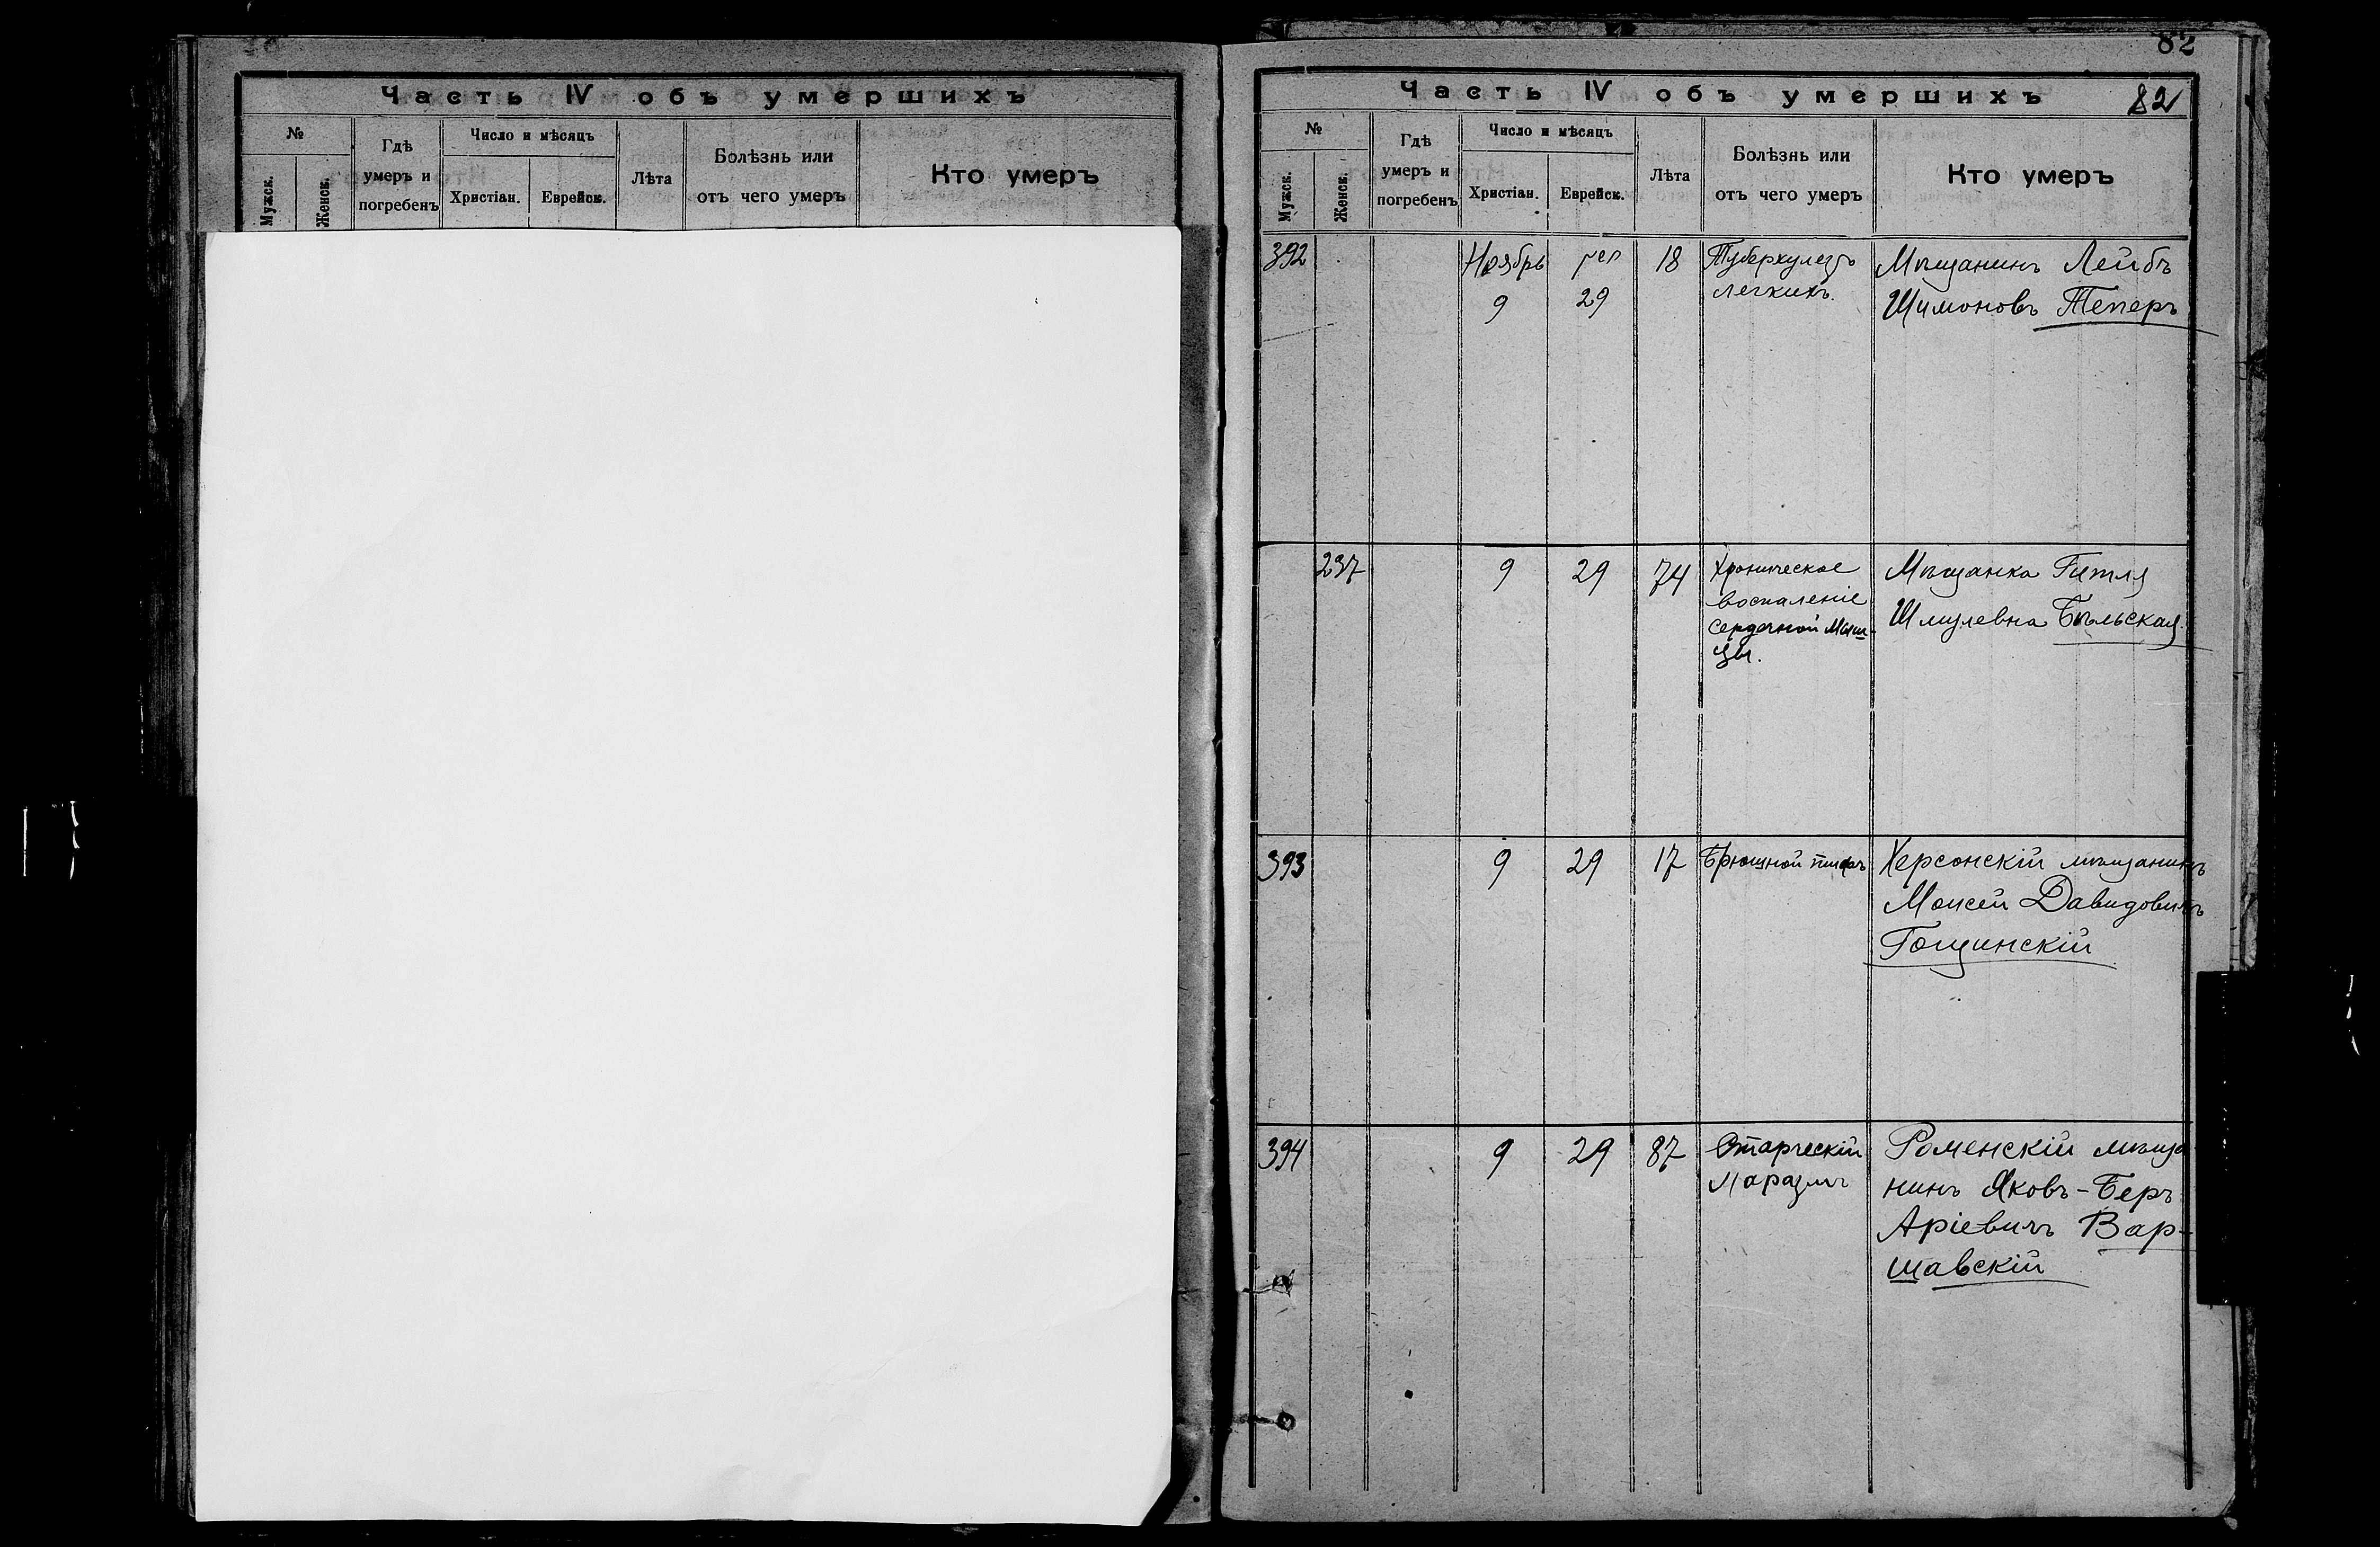 Часть IV объ умершихъ
№
Мужск.
Женск.
Гдѣ
умеръ и
погребенъ
Число и мѣсяцъ
Христіан.
Еврейск.
Лѣта
Болѣзнь или
отъ чего умеръ
Кто умеръ
82
Часть IV объ умершихъ 82
№
Мужск.
Женск.
Гдѣ
умеръ и
погребенъ
Число и мѣсяцъ
Христіан.
Еврейск.
Лѣта
Болѣзнь или
отъ чего умеръ
Кто умеръ
392
Ноябрь
9
29
18
Туберкулезъ
легкихъ.
Мѣщанинъ Лейбъ
Шимоновъ Теперъ
237
9
29
74
Хроническое
воспаленіе
сердечной мыш-
цы.
Мѣщанка Гитля
Шмулевна Бѣльская
393
9
29
17
Брюшной тифъ
Херсонскій мѣщанинъ
Моисей Давидовичъ
Гощинскій
394
9
29
87
Старческій
маразмъ
Роменскій мѣща
нинъ Яковъ-Беръ
Аріевичъ Вар-
шавскій